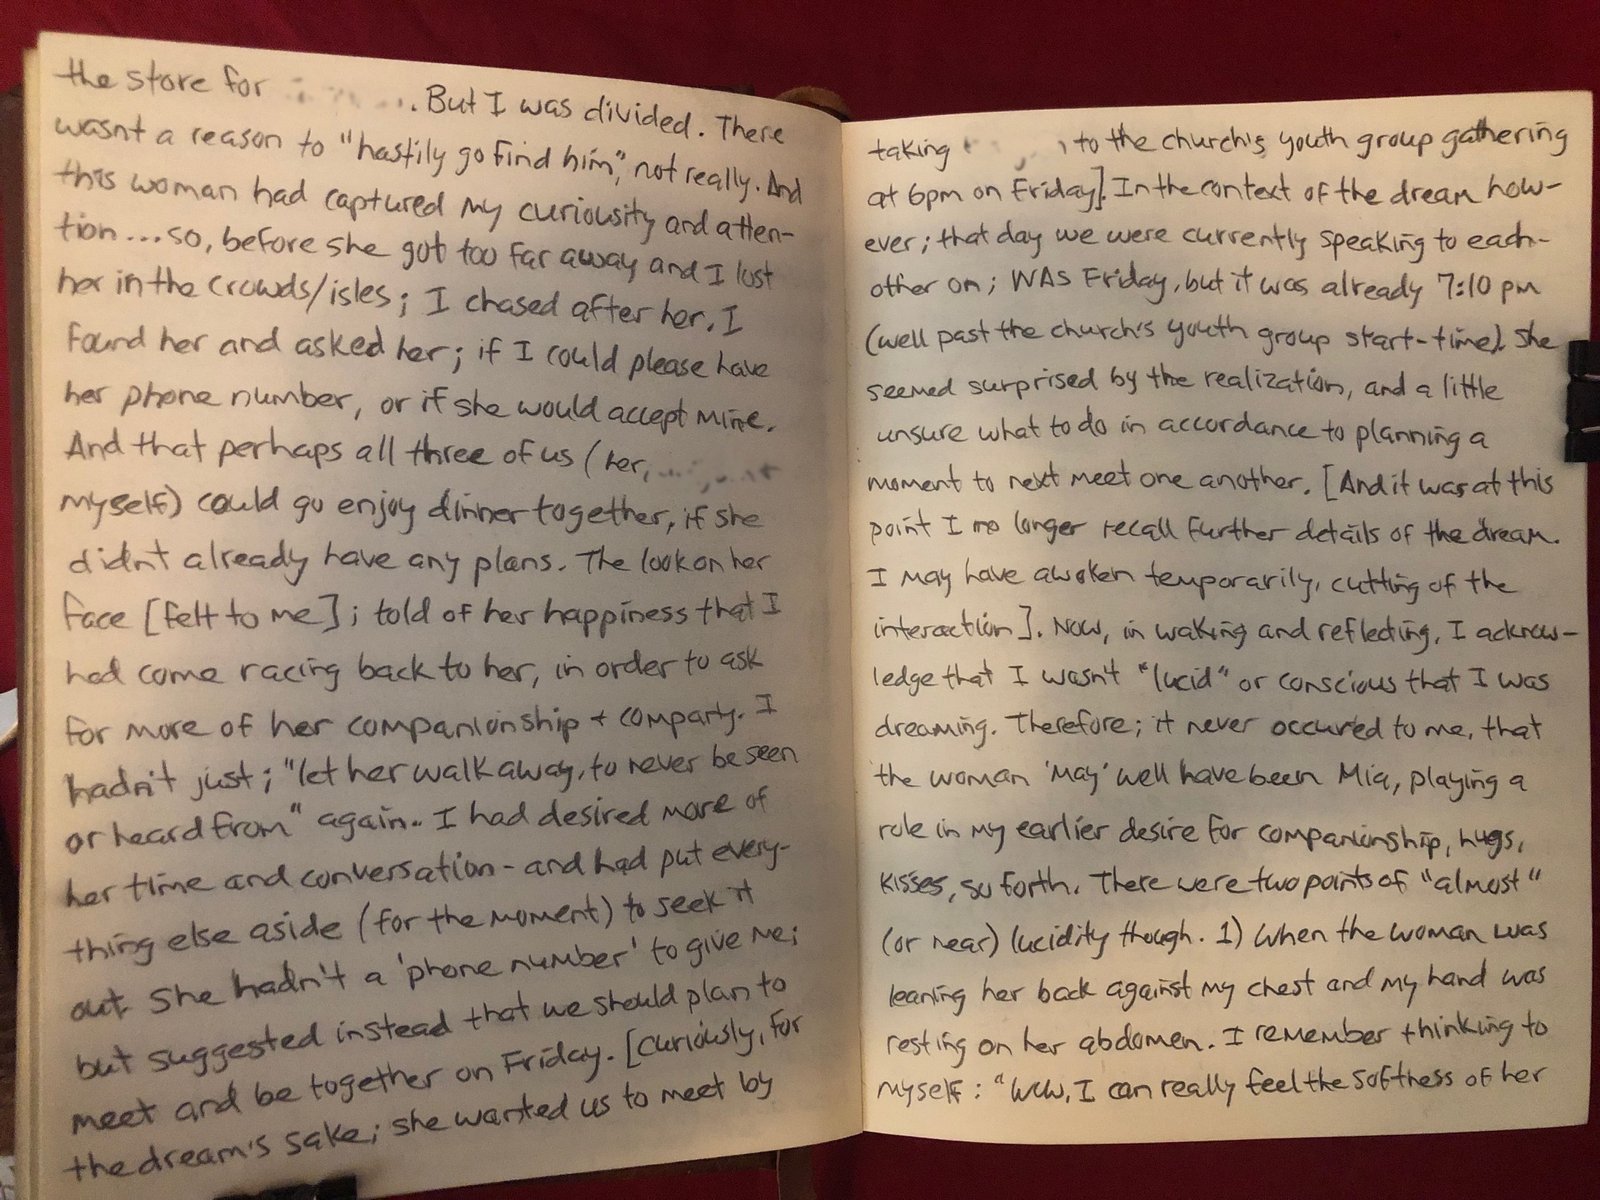 the store for . But I was divided. There
wasnt a reason to "hastily go find him", not really. And
this woman had captured my curiousity and atten-
tion...so, before she got too far away and I lost
her in the crowds/isles; I chased after her. I
found her and asked her; if I could please have
her phone number, or if she would accept mine.
And that perhaps all three of us (her,
myself) could go enjoy dinner together, if she
didn't already have any plans. The look on her
face [felt to me]; told of her happiness that I
had come racing back to her, in order to ask
for more of her companionship + company. I
hadn't just; "let her walk away, to never be seen
or heard from" again.. I had desired more of
her time and conversation - and had put every-
thing else aside (for the moment) to seek it
out. She hadn't a 'phone number' to give me;
but suggested instead that we should plan to
meet and be together on Friday. [Curiously, for
the dream's sake; she wanted us to meet by
taking to the church's youth group gathering
at 6pm on Friday]. In the context of the dream how-
ever; that day we were currently speaking to each-
other on; WAS Friday, but it was already 7:10 pm
(well past the church's youth group start-time). She
seemed surprised by the realization, and a little
unsure what to do in accordance to planning a
moment to next meet one another. [And it was at this
point I no longer recall further details of the dream.
I may have awoken temporarily, cutting of the
interaction]. Now, in waking and reflecting, I acknow-
ledge that I wasn't "lucid" or conscious that I was
dreaming. Therefore; it never occured to me, that
the woman 'may' well have been Mia, playing a
role in my earlier desire for companionship, hugs,
kisses, so forth. There were two points of "almost"
(or near) lucidity though. 1) When the woman was
leaning her back against my chest and my hand was
resting on her abdomen. I remember thinking to
myself: "Wow, I can really feel the softness of her